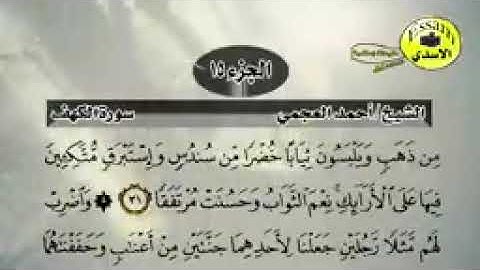 الجزء ١٥
الاسدي
الشيخ/أحمد العجمي
سورة الكهف
مِن ذَهَبٍ وَيَلْبَسُونَ ثِيَابًا خُضْرًا مِّن سُندُسٍ وَإِسْتَبْرَقٍ مُّتَّكِـِٔينَ
فِيهَا عَلَى ٱلْأَرَآئِكِ ۚ نِعْمَ ٱلثَّوَابُ وَحَسُنَتْ مُرْتَفَقًا ٣١ وَٱضْرِبْ
لَهُم مَّثَلًا رَّجُلَيْنِ جَعَلْنَا لِأَحَدِهِمَا جَنَّتَيْنِ مِنْ أَعْنَٰبٍ وَحَفَفْنَٰهُمَا